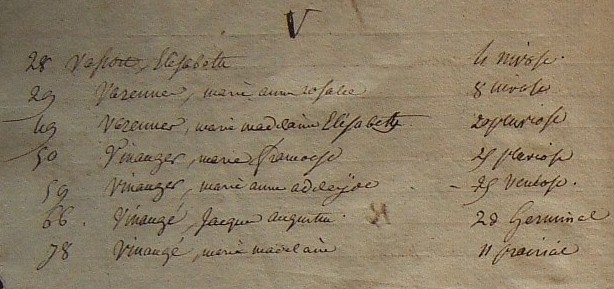 V
28 Vasport, Elisabeth 4 nivose.
29 Varenner, marie anne rosalie 8 nivose
49 Verenner, marie madelaine Elisabeth 29 pluviose
50 Vinanger, marie francoise 25 pluviose
59 Vinanger, marie anne addeÿde - 25 Ventose.
66. Vinangé, Jacque augustin. 2d Germinal
78 Vinangé, marie madelain 11 prairial